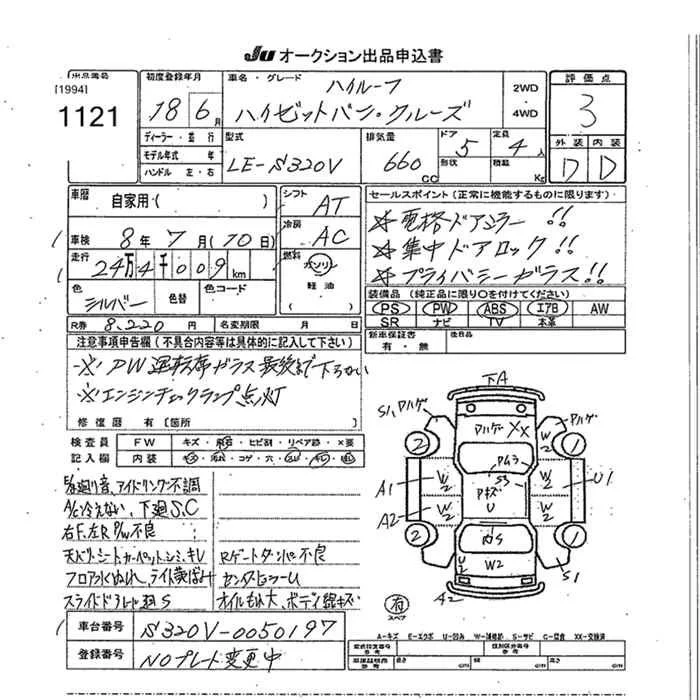 JU オークション出品申込書
出品番号
[1994]
1121
初度登録年月
18 6月
車名・グレード
ハイルーフ
ハイゼットバン・クルーズ
2WD
・
4WD
評価点
3
ディーラー・並行
モデル年式 年
ハンドル 左・右
型式
LE-S320V
排気量
660 cc
ドア
5
形状
定員
4人
積載
Kg
外装 内装
D D
車歴
自家用・( )
シフト
AT
車検
8年 7月(10日)
冷房
AC
走行
24万4千009km
燃料
ガソリン
軽油
( )
色
シルバー
色替
色コード
R券 8,220円
名変期限 月 日
セールスポイント(正常に機能するものに限ります)
☆電格ドアミラー!!
☆集中ドアロック!!
☆プライバシーガラス!!
装備品(純正品に限り○を付けてください)
PS PW ABS エアB AW
SR ナビ TV 本革
新車保証書
有・無
後日品
注意事項申告欄(不具合内容等は具体的に記入して下さい)
※PW運転席ガラス最後まで下らない
※エンジンチェックランプ点灯
修復歴 有〔箇所 〕
検査員
記入欄
FW キズ・飛石・ヒビ割・リペア跡・×要
内装
コゲ・穴
アイドリング不調
A/C冷えない、下廻S,C
右F、左R P/W不良
天バリ、シート、カーペット、シミ、キレ
Rゲートダンパー不良
フロア
スライドドアレール廻S
オイルもれ大、ボディ線キズ
S1 ハゲ
下A
ハゲ
XX
2
1
W2
A1
A2
U1
U
S3
W2
2
1
S1
A2
有
スペア
A-キズ E-エクボ U-凹み W-補修跡 S-サビ C-腐食 XX-交換済
車台番号
S320V-0050197
登録番号
NOプレート変更中
型式指定番号
類別区分番号
参考
長さ cm
幅 cm
高さ cm